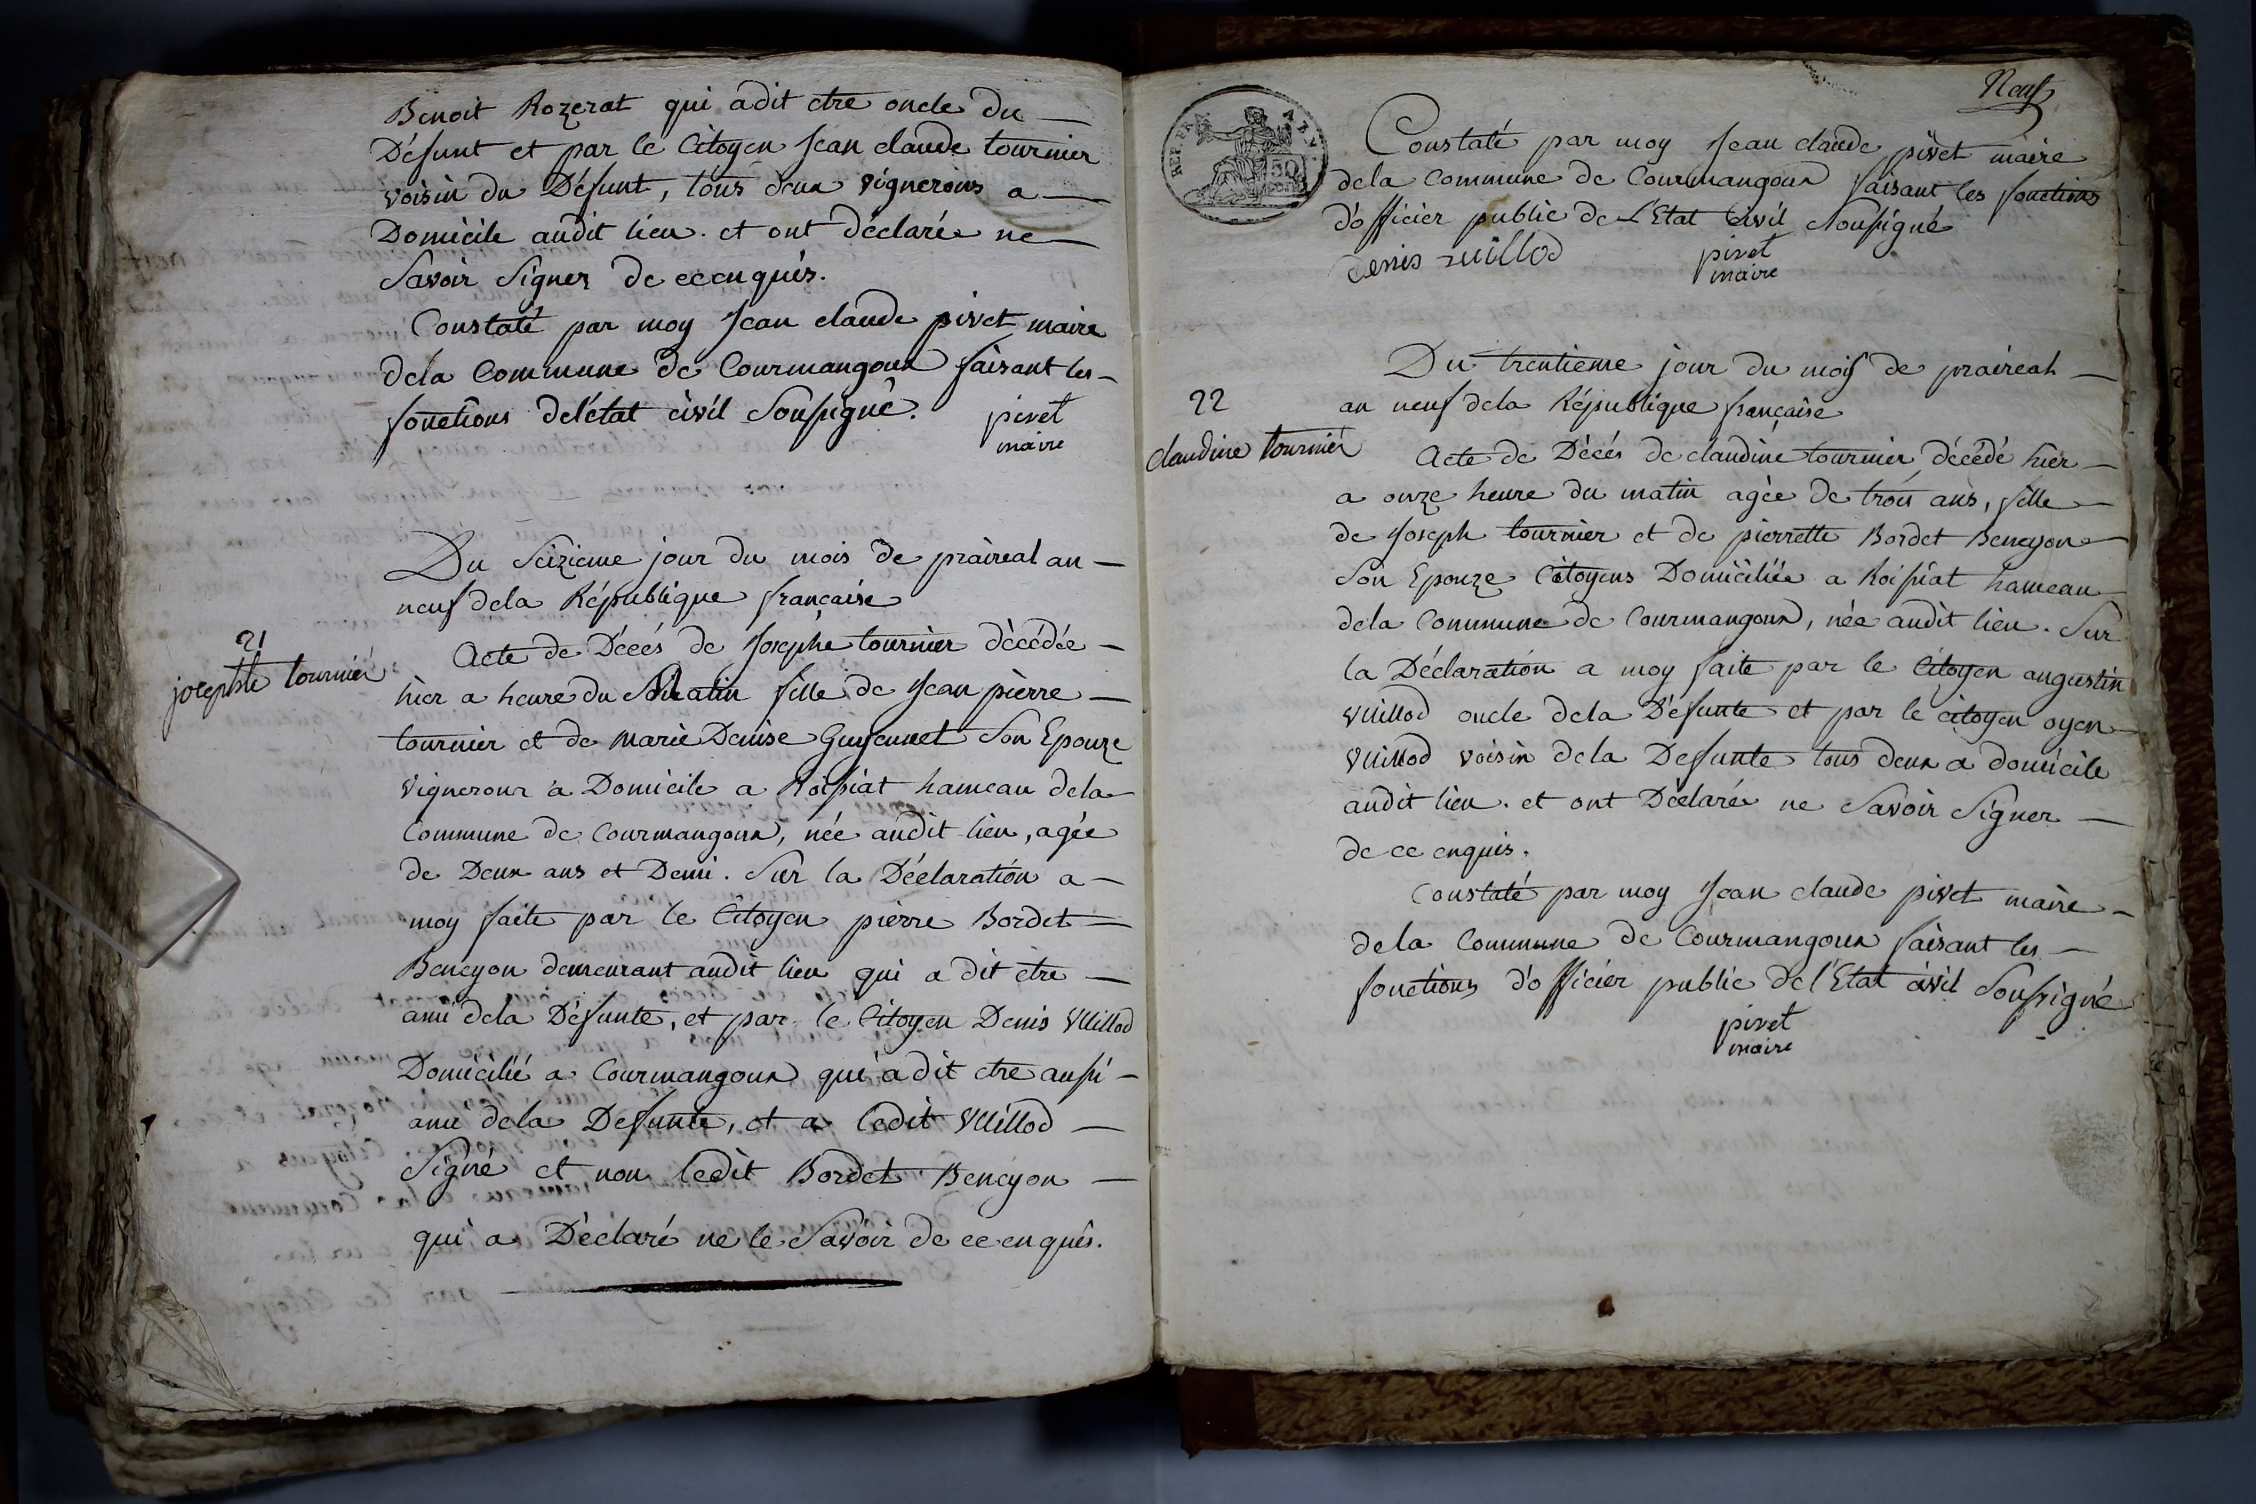 Benoit Rozerat qui adit etre oncle du
Défunt et par le Citoyen Jean claude tournier
voisin du Défunt, tous deux vignerons a
Domicile audit lieu. et ont déclaré ne
Savoir Signer de ce enquis.
Constaté par moy Jean claude pivet maire
dela Commune de Courmangoux faisant les
fonctions del'état civil Soussigné.
pivet
maire
Du Seizieme jour du mois de praireal an
neuf dela République française
21
josephte tournier
Acte de Décés de Josephe tournier décédée
hier a heure du Matin fille de Jean pierre
tournier et de Marie Denise Guyennet Son Epouze
vignerons a Domicile a Roissiat hameau dela
Commune de Courmangoux, née audit lieu, agée
de Deux ans et Demi. Sur la Déclaration a
moy faite par le Citoyen pierre Bordet
Beneyon demeurant audit lieu qui a dit etre
ami dela Défunte, et par le Citoyen Denis Vuillod
Domicilié a Courmangoux qui a dit etre aussi
ami dela Defunte, et a ledit Vuillod
Signé et non ledit Bordet Beneyon
qui a Déclaré ne le Savoir de ce enquis.
Neuf
REP. FRA
50
Constaté par moy Jean claude pivet maire
dela Commune de Courmangoux faisant les fonctions
d'officier public de L'Etat Civil Soussigné
denis vuillod
pivet
maire
Du trentieme jour du mois de praireal
an neuf dela République française
22
claudine tournier
Acte de Décés de claudine tournier décédé hier
a onze heure du matin agée de trois ans, fille
de Joseph tournier et de pierrette Bordet Beneyon
Son Epouze Citoyens Domiciliée a Roissiat hameau
dela Commune de Courmangoux, née audit lieu. Sur
la Déclaration a moy faite par le Citoyen augustin
Vuillod oncle dela Défunte et par le citoyen oyen
Vuillod voisin dela Defunte tous deux a domicile
audit lieu. et ont Déclaré ne Savoir Signer
de ce enquis.
Constaté par moy Jean claude pivet maire
dela Commune de Courmangoux faisant les
fonctions d'officier public del'Etat civil Soussigné
pivet
maire